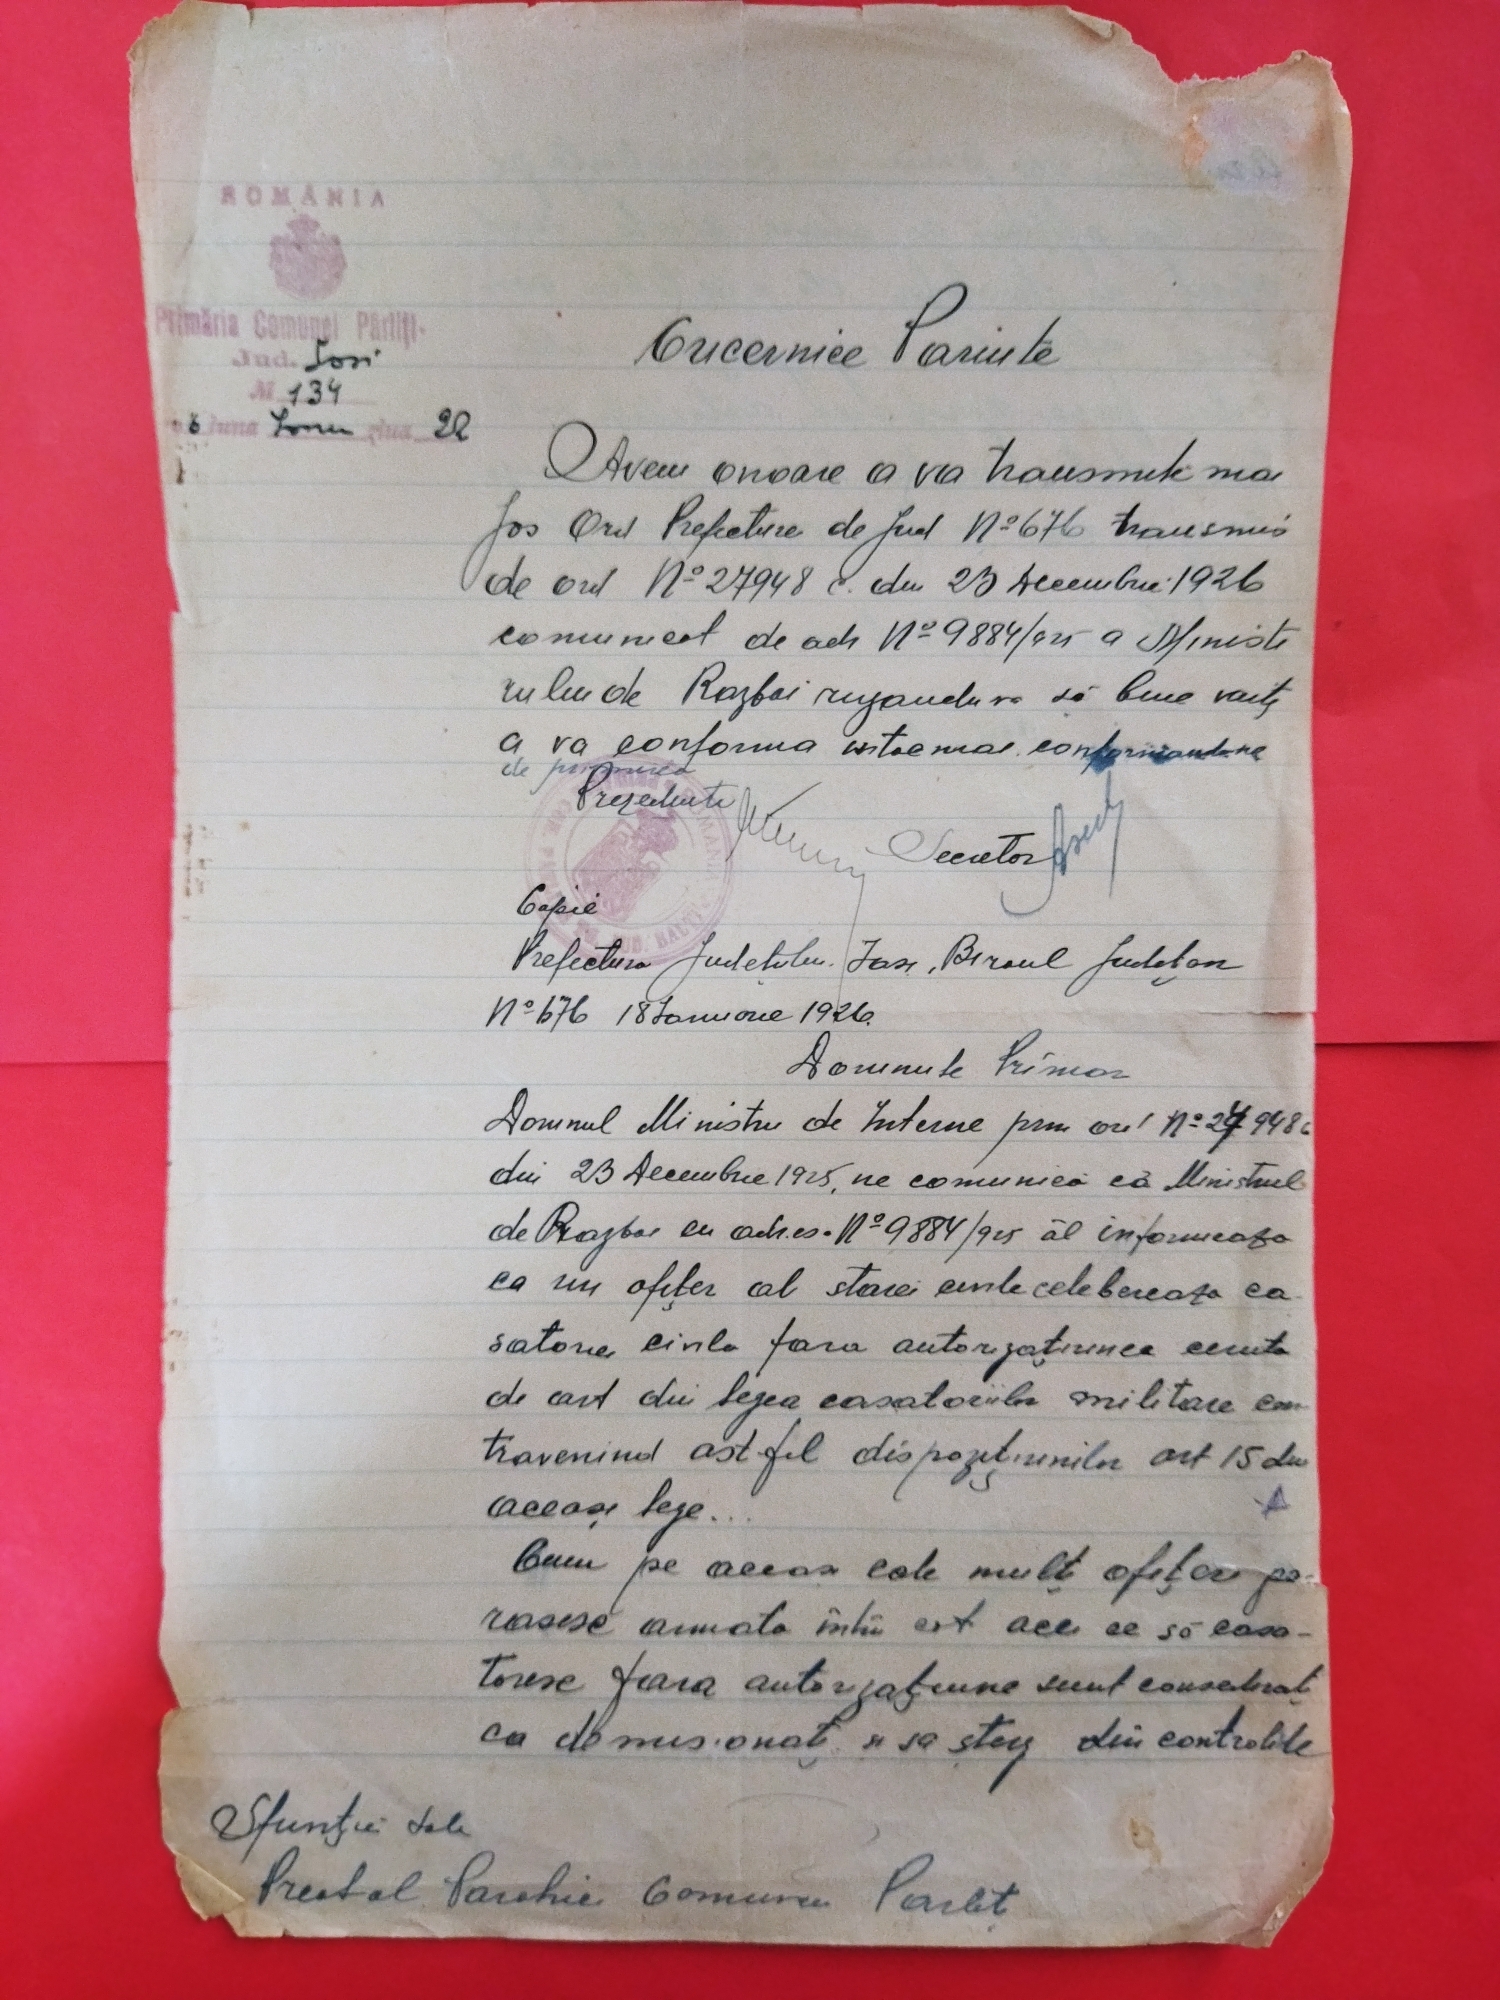 ROMÂNIA
Primăria Comunei Pârliți
Jud. Iasi
№ 134
6 luna Ianu ziua 22
Cucernice Parinte
Avem onoare a va transmite mai
jos Ord Prefecturei de Jud Nº 676 transmis
de ord Nº 27948 c. din 23 Decembrie 1926
comunicat de adr Nº 9884/925 a Ministe
rului de Razboi rugandu va să bine voiți
a va conforma intocmai conformandu-ne
de primirea
Prezedinte
Secretar
Copie
Prefectura Județului Iasi, Biroul Județian
Nº 676 18 Ianuarie 1926.
Domnule Primar
Domnul Ministru de Interne prin ord Nº 27948 c
din 23 Decembrie 1925, ne comunică că Ministrul
de Razboi cu adres. Nº 9884/925 âl informeaza
ca un ofițer al starei civile celebereaza ca
satoria civila fara autorizațiunea ceruta
de art din legea casatoriilor militare con
travenind ast-fel dispozițiunilor art 15 din
aceași lege...
Cum pe aceasi cale mulți ofițeri pa-
rasesc armata întru cât acei ce să casa-
toresc fara autorizațiune sunt considerați
ca demisionați si sa șterg din controlile
Sfinției Sale
Preotul Parohiei Comunei Parliț